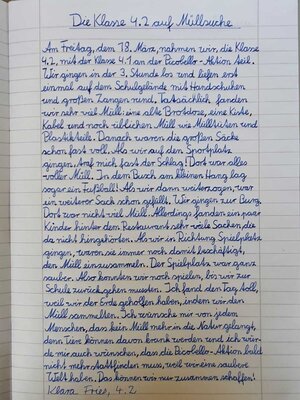 Die Klasse 4.2 auf Müllsuche
Am Freitag, dem 18. März, nahmen wir, die Klasse
4.2, mit der Klasse 4.1 an der Picobello-Aktion teil.
Wir gingen in der 3. Stunde los und liefen erst
einmal auf dem Schulgelände mit Handschuhen
und großen Zangen rund. Tatsächlich fanden
wir sehr viel Müll: eine alte Brotdose, eine Kiste,
Kabel und noch üblichen Müll wie Mülltüten und
Plastikteile. Danach waren die großen Säcke
schon fast voll. Als wir auf den Sportplatz
gingen, traf mich fast der Schlag! Dort war alles
voller Müll. In dem Busch am kleinen Hang lag
sogar ein Fußball! Als wir dann weiterzogen, war
ein weiterer Sack schon gefüllt. Wir gingen zur Burg.
Dort war nicht viel Müll. Allerdings fanden ein paar
Kinder hinter dem Restaurant sehr viele Sachen, die
da nicht hingehörten. Als wir in Richtung Spielplatz
gingen, waren sie immer noch damit beschäftigt,
den Müll einzusammeln. Der Spielplatz war ganz
sauber. Also konnten wir noch spielen, bis wir zur
Schule zurückgehen mussten. Ich fand den Tag toll,
weil wir der Erde geholfen haben, indem wir den
Müll sammelten. Ich wünsche mir von jedem
Menschen, dass kein Müll mehr in die Natur gelangt,
denn Tiere können davon krank werden und ich wür-
de mir auch wünschen, dass die Picobello-Aktion bald
nicht mehr stattfinden muss, weil wir eine saubere
Welt haben. Das können wir nur zusammen schaffen!
Klara Fries, 4.2